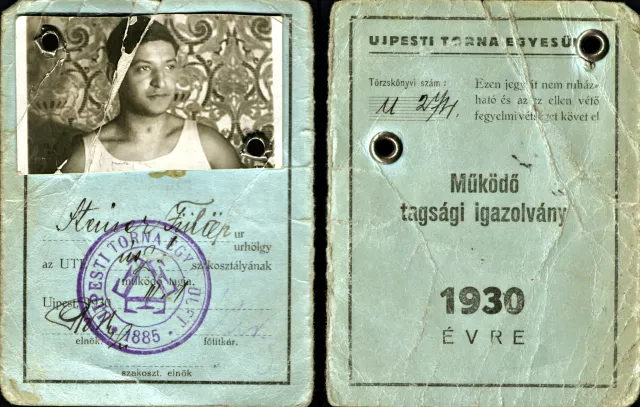 Steiner Fülöp ur
urhölgy
az UTE úszó szakosztályának
működő tagja.
Ujpest, 1930
elnök
főtitkár.
szakoszt. elnök
UJPESTI TORNA EGYESÜLET
1885
UJPESTI TORNA EGYESÜ
Törzskönyvi szám:
Ezen jegyét nem ruház-
ható és az ez ellen vétő
fegyelmi vétséget követ el
Működő
tagsági igazolvány
1930
ÉVRE